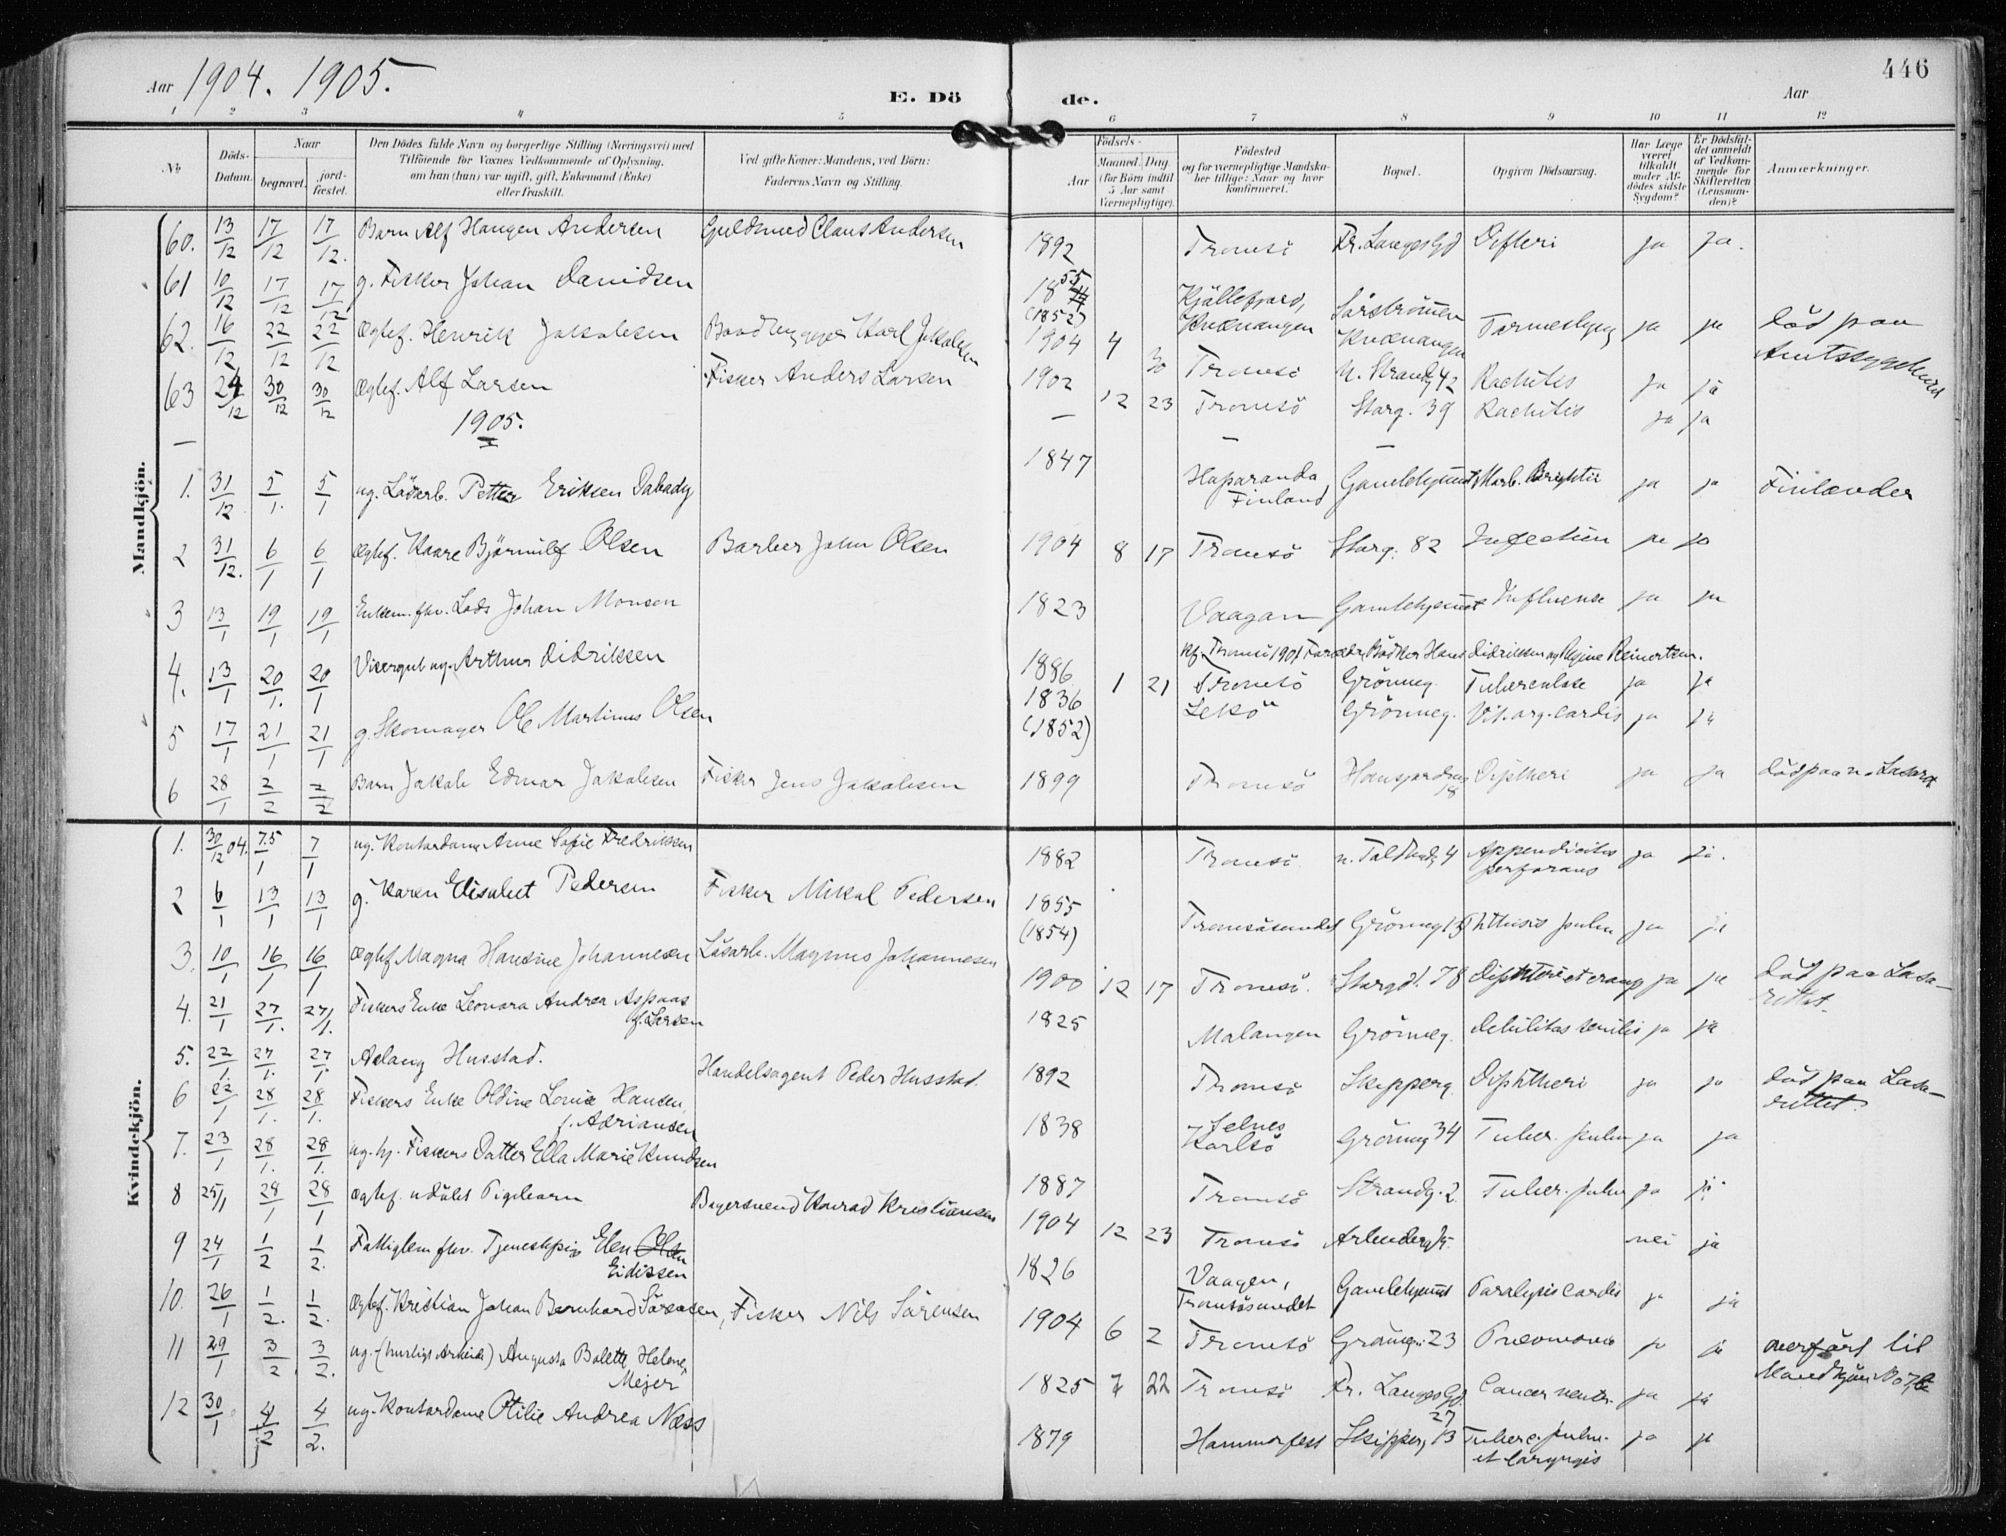 Aar 1904. 1905.
E. Dö
de.
Aar
446
1 2 3 4 5 6 7 8 9 10 11 12
No.
Döds-Datum.
Naar
begravet.
jord-fæstet.
Den Dödes fulde Navn og borgerlige Stilling (Næringsvei) med
Tilföiende for Voxnes Vedkommende af Oplysning,
om han (hun) var ugift, gift, Enkemand (Enke)
eller fraskilt.
Ved gifte Koner: Mandens, ved Börn:
Faderens Navn og Stilling.
Födsels-
Aar
Maaned. Dag.
(for Börn indtil
5 Aar samt
Værnepligtige).
Födested
og for værnepligtige Mandska-
ber tillige: Naar og hvor
konfirmeret.
Bopæl.
Opgiven Dödsaarsag.
Har Læge
været
tilkaldt
under Af-
dödes sidste
Sygdom?
Er Dödsfal-
det anmeldt
af Vedkom-
mende for
Skifteretten
(Lensman-
den)?
Anmærkninger.
Mandkjön.
60. 13/12 17/12 17/12. Barn Alf Haugen Andersen Guldsmed Claus Andersen 1892 Tromsö Fr. Langesgd Difteri ja ja.
61 10/12 17/12 17/12 g. Fisker Johan Davidsen 1855 (1852) Kjöllefjord, Kvænangen Sörströmmen Kvænangen ja ja död paa Amtssygehuset
62. 16/12 22/12 22/12 Ægtef. Henrik Jakobsen Baadbygger Karl Jakobsen 1904 4 30 Tromsö n. Strandg 42 Rachitis ja ja
63 24/12 30/12 30/12 Ægtef. Alf Larsen Fisker Anders Larsen 1902 12 23 Tromsö Storg. 39 Rachitis ja ja
1905.
1. 31/12 5/1. 5/1 ug. Lösarb. Petter Eriksen 1847 Haparanda, Finland Gamlehjemmet ja ja Finlænder
2 31/12. 6/1 6/1 Ægtef. Kaare Björnulf Olsen Barber John Olsen 1904 8 17 Tromsö Storg. 82 ja ja
3 13/1 19/1 19/1 Enkem. fhv. Lods Johan Monsen 1823 Vaagan Gamlehjemmet Influensa ja ja
kf. Tromsö 1901 Forældre Bödker Hans Didriksen og Regine Reinertsen.
4. 13/1 20/1. 20/1 Visergut ug. Arthur Didriksen 1886 1 21 Tromsö Grönneg. Tuberculose ja ja
5 17/1 21/1 21/1 g. Skomager Ole Martinus Olsen 1836 (1852) Lekö Grönneg. Vit. org. cordis ja ja
6 28/1 2/2 2/2 Barn Jakob Edmar Jakobsen Fisker Jens Jakobsen 1899 Tromsö 18 Diptheri ja ja död paa n. Lasaret
Kvindekjön.
1. 30/12 04. 7.5/1 7/1 ug. Kontordame Anne Sofie Fredriksen 1882 Tromsö n. Toldbodg 4 Appendicitis perforans ja ja.
2 6/1 13/1 13/1 g. Karen Elisabet Pedersen Fisker Mikal Pedersen 1855 (1854) Tromsösundet Grönneg 13 Phthisis pulm ja ja
3. 10/1 16/1 16/1 Ægtef Magna Hansine Johannesen Lösarb. Magnus Johannesen 1900 12 17 Tromsö. Storgd. 78 Diphteri et croup ja ja död paa Lasarettet.
4. 21/1 27/1. 27/1. Fiskers Enke Leonora Andrea Aspaas f. Larsen 1825 Malangen Grönneg. debilitas senilis ja ja
5. 22/1. 27/1. 27/1. Aslaug Husstad. Handelsagent Peder Husstad. 1892 Tromsö Skipperg. Diphtheri ja ja död paa Lasarettet.
6 22/1 28/1. 28/1. Fiskers Enke Oldine Lovise Hansen, f. Adriansen 1838 Selnes Karlsö Grönneg 34 Tuber. pulm ja ja
7. 23/1 28/1. 28/1. ug. hj. Fiskers Datter Ella Marie Knudsen 1887 Tromsö Strandg. 2 Tuber. pulm ja ja
8 25/1 28/1 28/1 Ægtef. udöbt Pigebarn Bagersvend Konrad Kristiansen 1904 12 23 Tromsö nei ja
9 24/1 1/2 1/2. Fattiglem fhv. Tjenestepige Elen Olsen Eidissen 1826 Vaagen, Tromsösundet Gamlehjemmet Paralysis cordis ja ja
10. 26/1 1/2. 1/2. Ægtef. Kristian Johan Bernhard Sörensen, Fisker Nils Sörensen 1904 6 2 Tromsö Grönneg. 23 Pneumonia ja ja overfört til Mandkjön No 7
11 29/1 3/2. 3/2. ug. (huslige Arbeide) Augusta Bolette Helene Mejer 1825 7 22 Tromsö Fr. Langesgd. 27 Cancer ventr. ja ja
12 30/1 4/2 4/2. ug. Kontordame Otilie Andrea Næss 1879 Hammerfest Skipperg 13 Tuberc. pulm. et laryngis ja ja